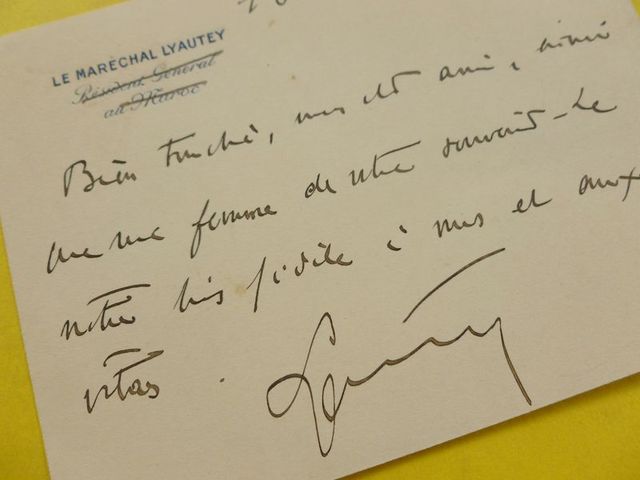 LE MARÉCHAL LYAUTEY
Résident Général
au Maroc
Bien touché, mon cher ami, ainsi
que ma femme de votre souvenir - Le
nôtre très fidèle à vous et aux
vôtres.
Lyautey